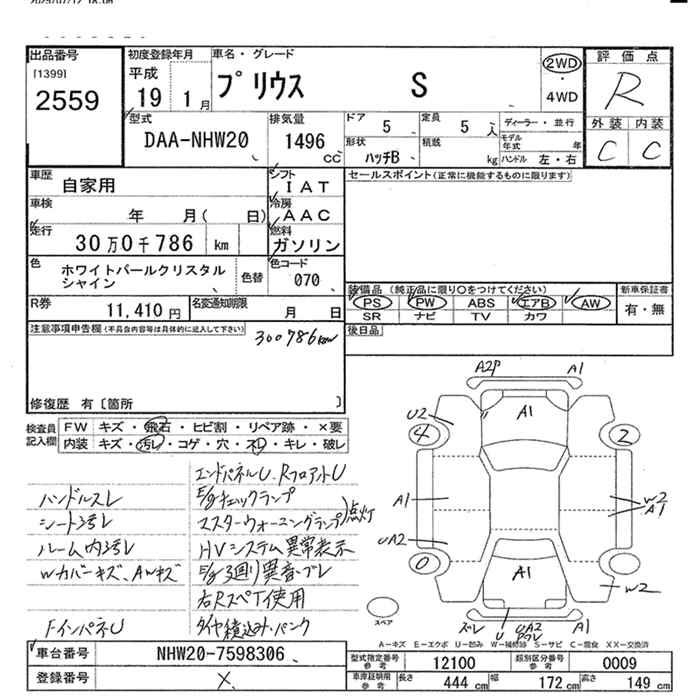 2025/07/12 18:08
出品番号
[1399]
2559
初度登録年月
平成
19 1月
車名・グレード
プリウス S
2WD
・
4WD
評価点
R
外装 内装
C C
型式
DAA-NHW20
排気量
1496
cc
ドア
5
定員
5人
形状
ハッチB
積載
kg
ディーラー・並行
モデル年式 年
ハンドル 左・右
車歴
自家用
シフト
IAT
車検
年 月( 日)
冷房
AAC
走行
30万0千786 km
燃料
ガソリン
色
ホワイトパールクリスタルシャイン
色替
色コード
070
R券
11,410円
名変通知期限
月 日
セールスポイント(正常に機能するものに限ります)
装備品(純正品に限り○をつけてください)
PS PW ABS エアB AW
SR ナビ TV カワ
新車保証書
有・無
後日品
注意事項申告欄(不具合内容等は具体的に記入して下さい)
300786km
修復歴 有〔箇所 〕
検査員記入欄
FW キズ・飛石・ヒビ割・リペア跡・×要
内装 キズ・汚レ・コゲ・穴・スレ・キレ・破レ
エンドパネルU、RフロアントU
ハンドルスレ
E/gチェックランプ
シート汚レ
マスターウォーニングランプ)点灯
ルーム内汚レ
HVシステム異常表示
Wカバーキズ、AWキズ
E/g廻り異音・ブレ
右RスペT使用
FインパネU
タイヤ積込み・パンク
A2P A1
U2
A1
4 2
A1
W2
A1
UA2
0
A1
W2
スペア
ズレ U UA2 A1
A-キズ E-エクボ U-凹み W-補修跡 S-サビ C-腐食 XX-交換済
車台番号
NHW20-7598306
登録番号
X
型式指定番号
参考
12100
類別区分番号
参考
0009
車庫証明用
参考
長さ 444cm
幅 172cm
高さ 149cm